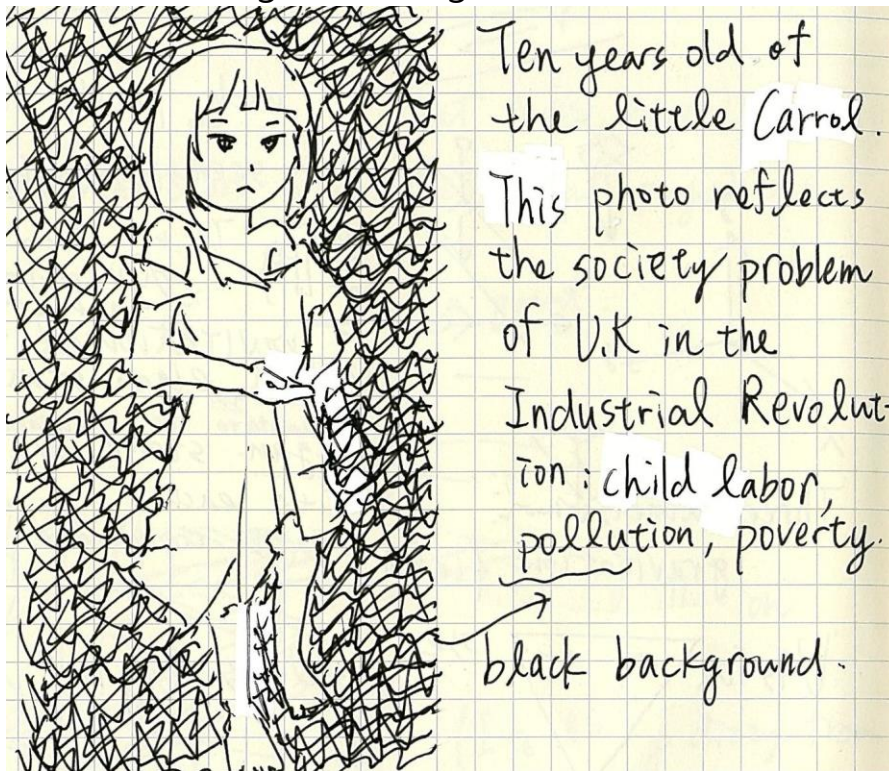 Ten years old of
the little Carrol.
This photo reflects
the society problem
of U.K in the
Industrial Revolut-
ion : child labor,
pollution, poverty.
black background.